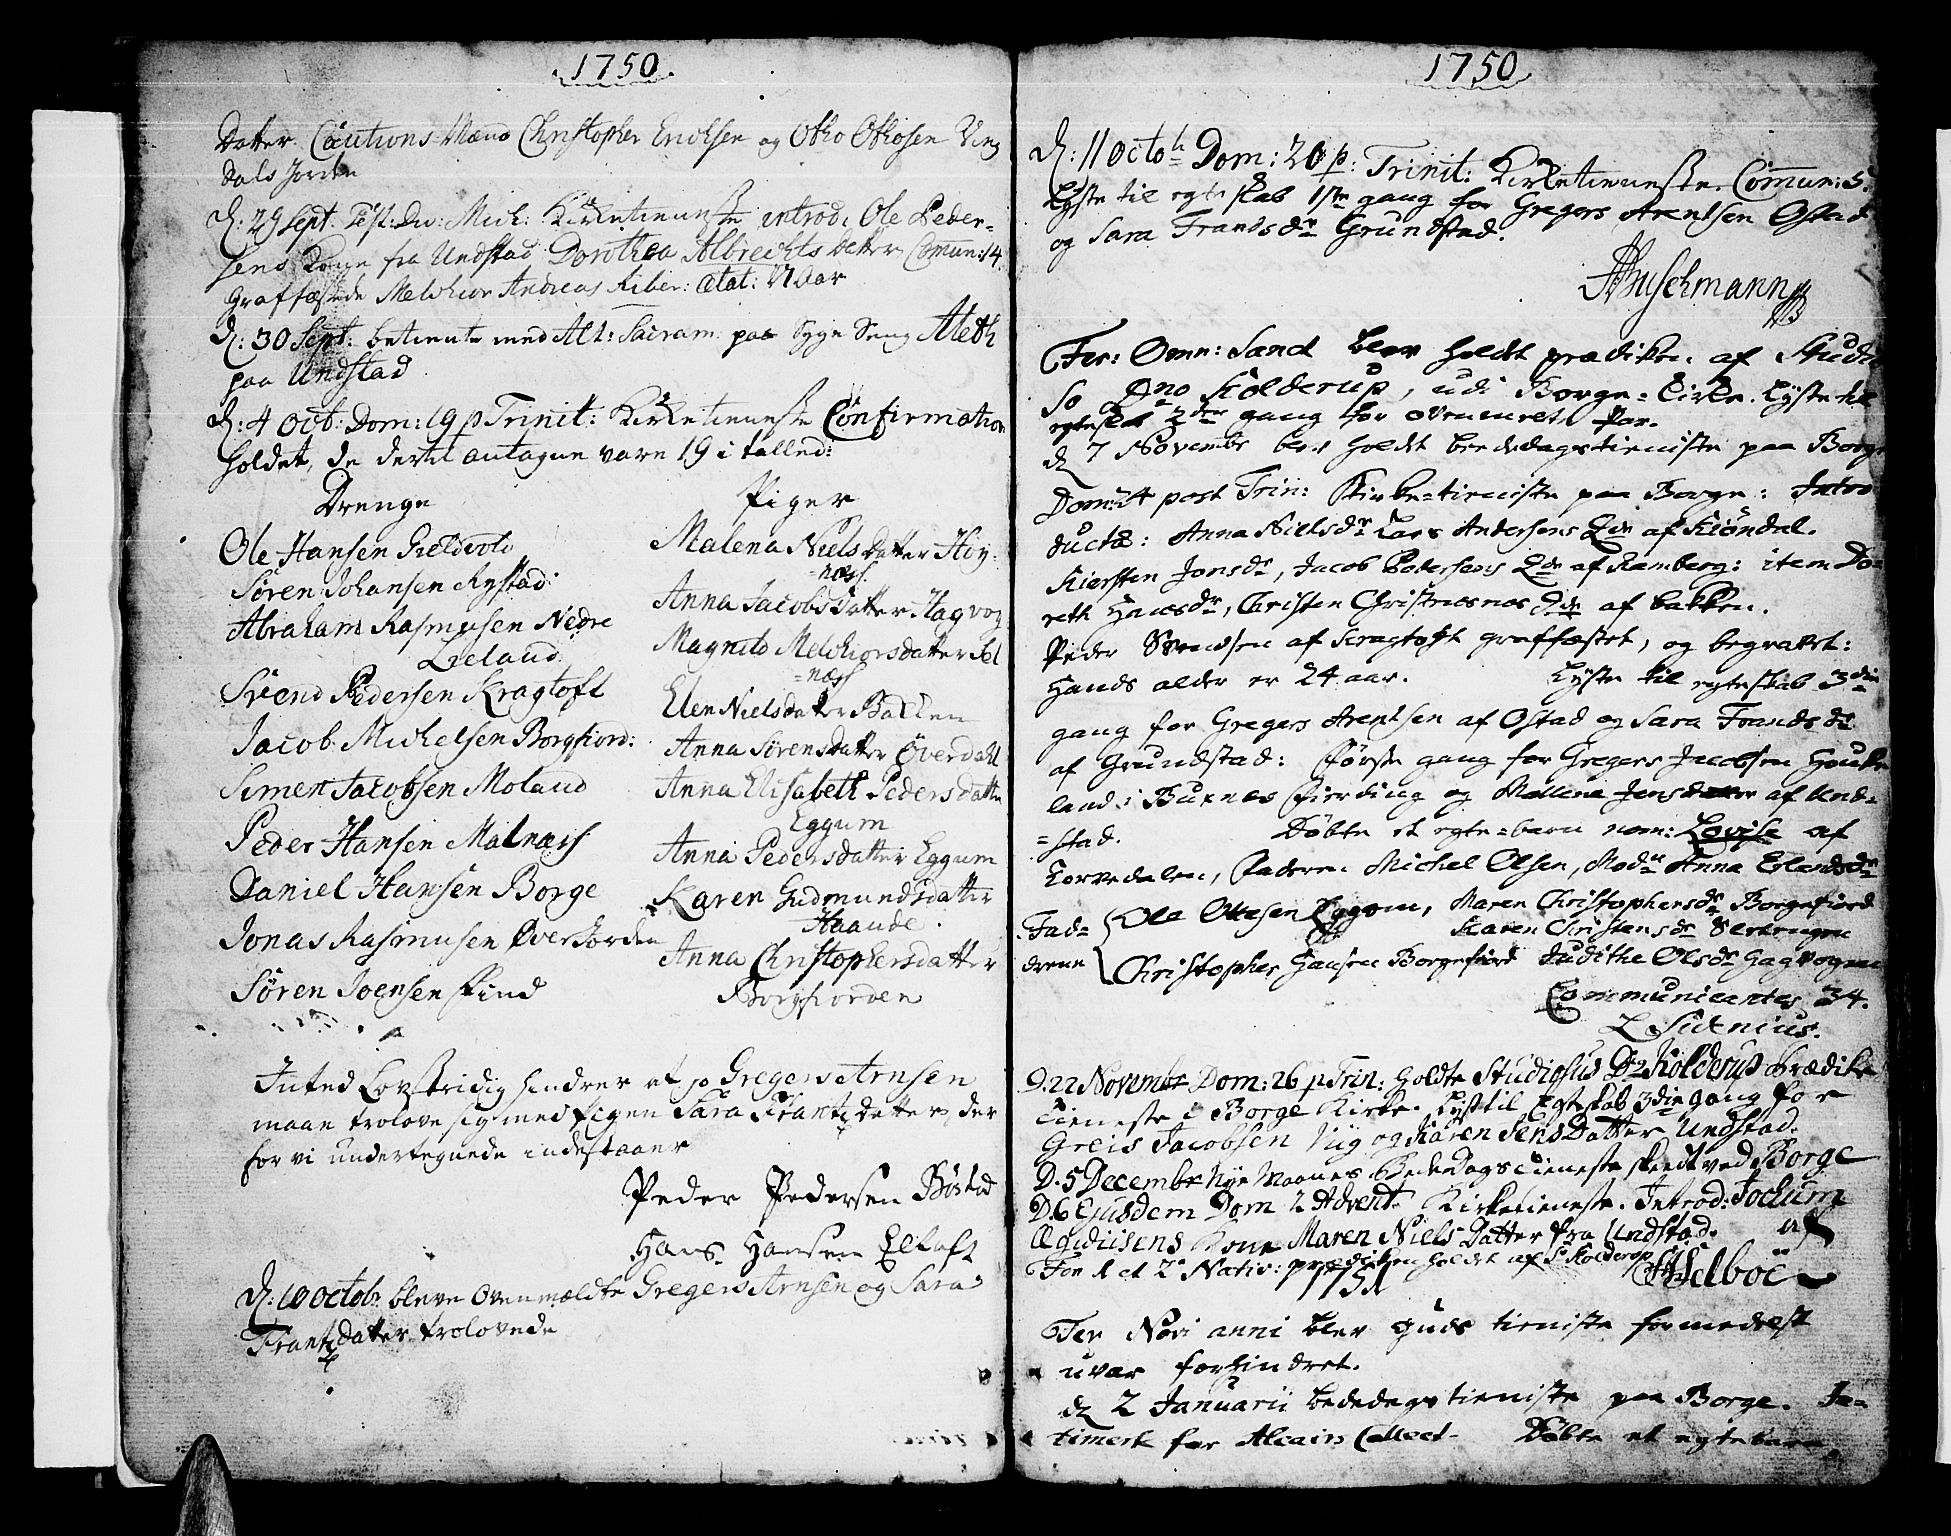 1750
Datter. Cautions-Mænd Christopher Erichsen og Otho Othosen Ving
dals Jorden
D: 29 Sept: Fest: Div: Mich: Kirketienneste introd: Ole Peder-
sens Kone fra Undstad Dorothea Albrechts Datter Comun: 14.
Graffæstede Melchior Andreas Riber: ætat: 17 Aar
D: 30 Sept: betient med Alt: Sacram: paa Syge Seng Aleth
paa Undstad
D: 4 Oct: Dom: 19 p Trinit: Kirketienneste Confirmation
holdet, de dertil antagne vare 19 i talled:
Drenge
Ole Hansen Gieldvold
Sören Johansen Rystad:
Abraham Rasmusen Nedre
Leland
Svend Pedersen Kragtoft
Jacob Michelsen Borgfiord:
Simen Jacobsen Moland
Peder Hansen Malnæss
Daniel Hansen Borge
Jonas Rasmusen Øverjorden
Sören Joensen Find
Piger
Malena Niels Datter Höy-
=næss.
Anna Jacobsdatter Hagvog
Magnild Melchiorsdatter Sel
=næss
Elen Nielsdatter Bakken
Anna Sörensdatter Överdahl
Anna Elisabeth Pedersdatter
Eggum
Anna Pedersdatter Eggum
Karen Gudmundsdatter
Haande.
Anna Christophersdatter
Borgfiorden
Inted Lovstridig hindrer at jo Gregers Arnsen
maae trolove sig med Pigen Sara Frantz datter, der
for vi undertegnede indestaaer
Peder Pedersen Böstad
Hans Hansen Eltoft
D: 10 Octob: bleve ovenmældte Gregers Arnsen og Sara
Frantz datter trolovede
1750
D: 11 Octob Dom: 20 p: Trinit: Kirketienneste. Comun: 5.
Lyste til egteskab 1ste gang for Gregers Arentsen Ostad
og Sara Frandsdr Grundstad.
Buschmann
Fer: Omn: Sanct blev holdt prædiken af Studio
So Dno Kolderup, udi Borge-Kirke. Lyste til
egteskab 2den gang for ovenmeldte Par.
d 7 Novembr blev holdt bededagstieniste paa Borge
Dom: 24 post Trin: Kirke-tieniste paa Borge: Intro
ductæ: Anna Nielsdr Lars Andersens Qde af Kiöndal.
Kiersten Jonsdr, Jacob Pedersens Qde af Ramberg: item Do-
reth Hansdr, Christen Christensens Qde af bakken.
Peder Svendsen af Kragtoft graffæstet, og begravet:
Hands alder er 24 aar. Lyste til egteskab 3die
gang for Gregers Arentsen af Ostad og Sara Frandsdr
af Grundstad: første gang for Gregers Jacobsen Houke
land i Buxnes fierding og Mallene Jensdatter af Und-
=stad. Döbte et egte-barn nom: Lovise af
Torvedalen, faderen Michel Olsen, Modr Anna Erlandsdr
Fad-
drene
Ole Ottesen Eggom, Maren Christophersdr Borgefiord
Karen Christensdr
Christopher Hansen Borgefiord Judithe Olsdr Hagvogen
Communicantes 34.
L Sidenius.
D. 22 Novembr Dom: 26 p Trin: holdte Studiosus Dn Kolderup Prædike
tieneste i Borge Kirke. Lyst til Egteskab 3die gang for
Greis Jacobsen Viig og Karen Jens Datter Undstad.
D. 5 Decembr Nye Maanes Bededags tieneste skeedt ved Borge
D. 6 Ejusdem Dom 2 Advent. Kirketieneste. Introd: Jochum
Ægidiisens Kone Maren Niels Datter fra Undstad. af
Fer 1 et 2 Nativ: prædiken holdet af S: Kolderup Hselboe
1751
Fer Novi anni blev Guds tieniste formedelst
uvær forhindret.
d 2 Januarii bededagstieniste paa Borge. In-
timert for Alcairs Collect Döbte et egtebarn